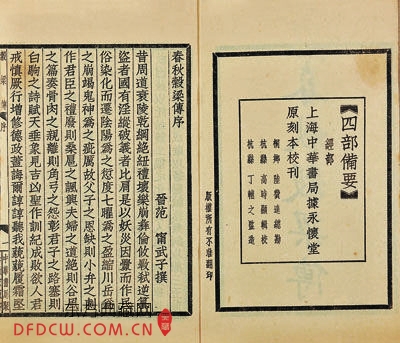 四部備要
經部
上海中華書局據永懷堂
原刻本校刊
桐鄉 陸費逵總勘
杭縣 高時顯輯校
杭縣 丁輔之監造
版權所有不准翻印
春秋穀梁傳序
晉范 甯武子撰
昔周道衰陵乾綱絕紐禮壞樂崩彝倫攸斁弒逆篡
盜者國有淫縱破義者比肩是以妖災因釁而作民
俗染化而遷陰陽爲之愆度七曜爲之盈縮川岳爲
之崩竭鬼神爲之疵厲故父子之恩缺則小弁之刺
作君臣之禮廢則桑扈之諷興夫婦之道絕則谷風
之篇奏骨肉之親離則角弓之怨彰君子之路塞則
白駒之詩賦天垂象見吉凶聖作訓紀成敗欲人君
戒慎厥行增修德政蓋誨爾諄諄聽我藐藐履霜堅
穀梁傳 序
一
DFDCW.COM